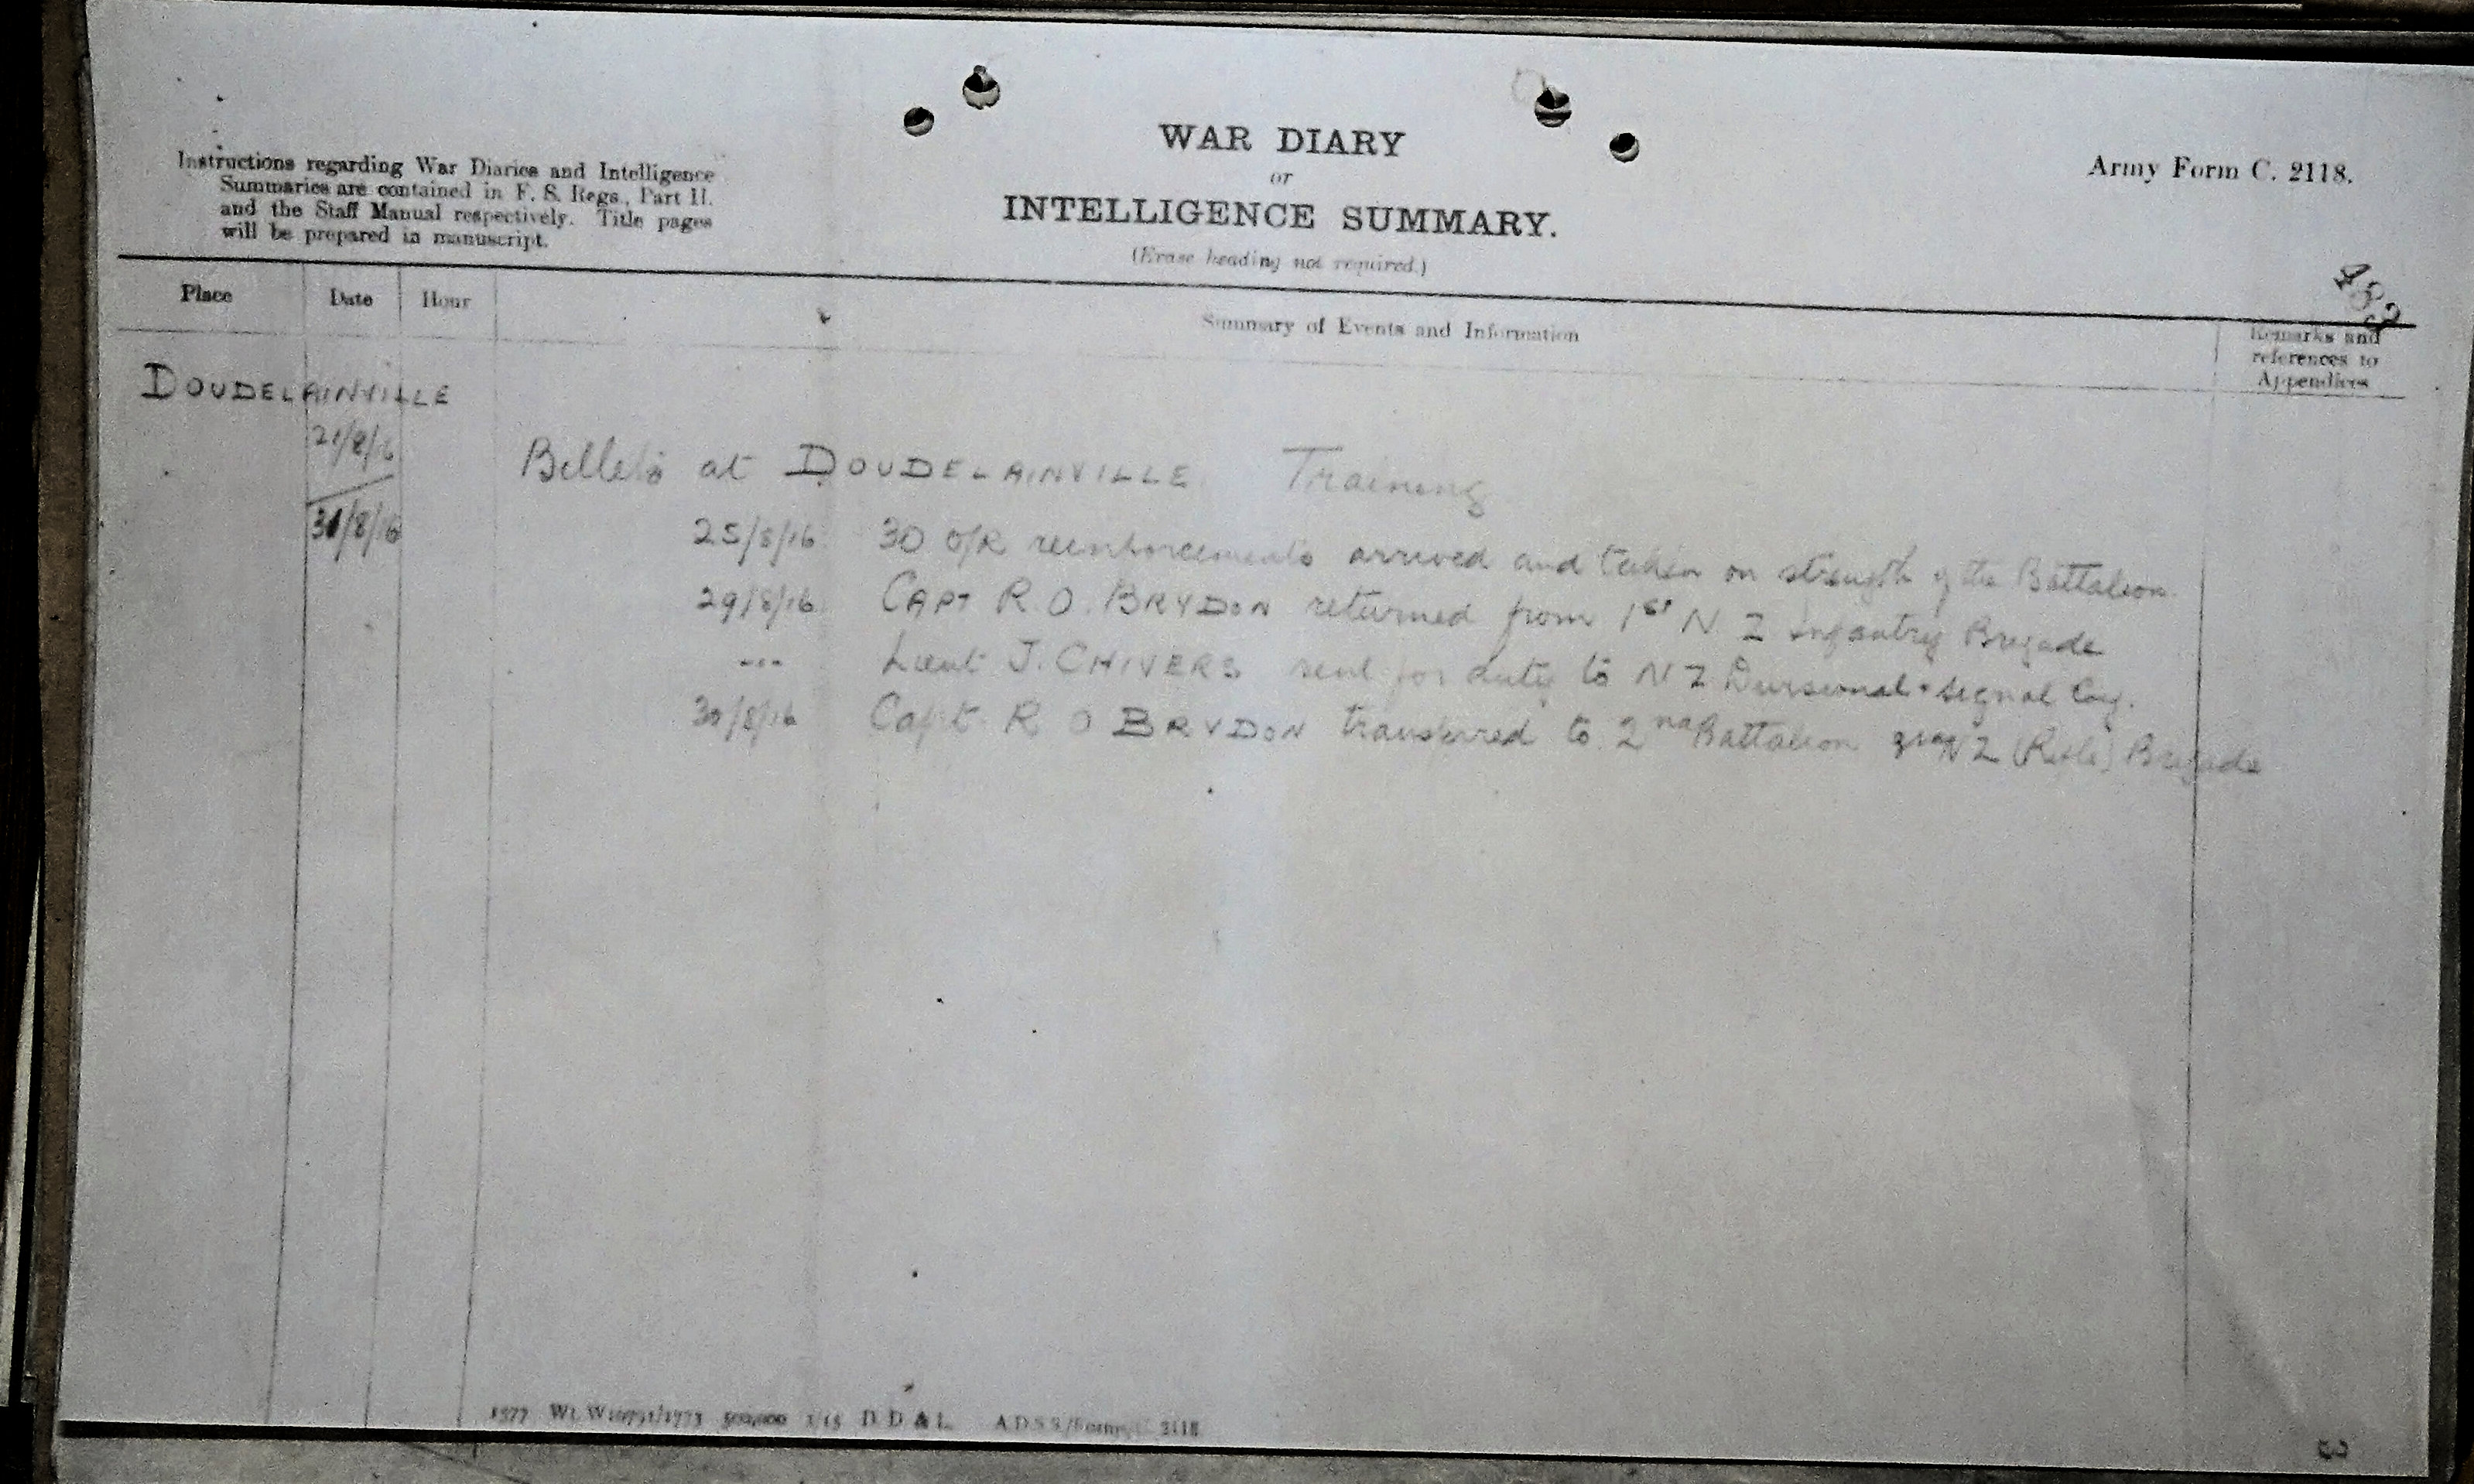 WAR DIARY
or
INTELLIGENCE SUMMARY.
(Erase heading not required.)
Army Form C. 2118.
Instructions regarding War Diaries and Intelligence
Summaries are contained in F. S. Regs., Part II.
and the Staff Manual respectively. Title pages
will be prepared in manuscript.
Place Date Hour Summary of Events and Information Remarks and
references to
Appendices
DOUDELAINVILLE
21/8/16
31/8/16
Billets at DOUDELAINVILLE Training
25/8/16 30 O/R reinforcements arrived and taken on strength of the Battalion.
29/8/16 CAPT R. O. BRYDON returned from 1st N Z Infantry Brigade
Lieut J. CHIVERS sent for duty to N Z Divisional Signal Coy.
30/8/16 Capt R O BRYDON transferred to 2nd Battalion 3rd N Z (Rifle) Brigade
1577 500,000 1/15 D. D. & L. A.D.S.S./Forms/C. 2118